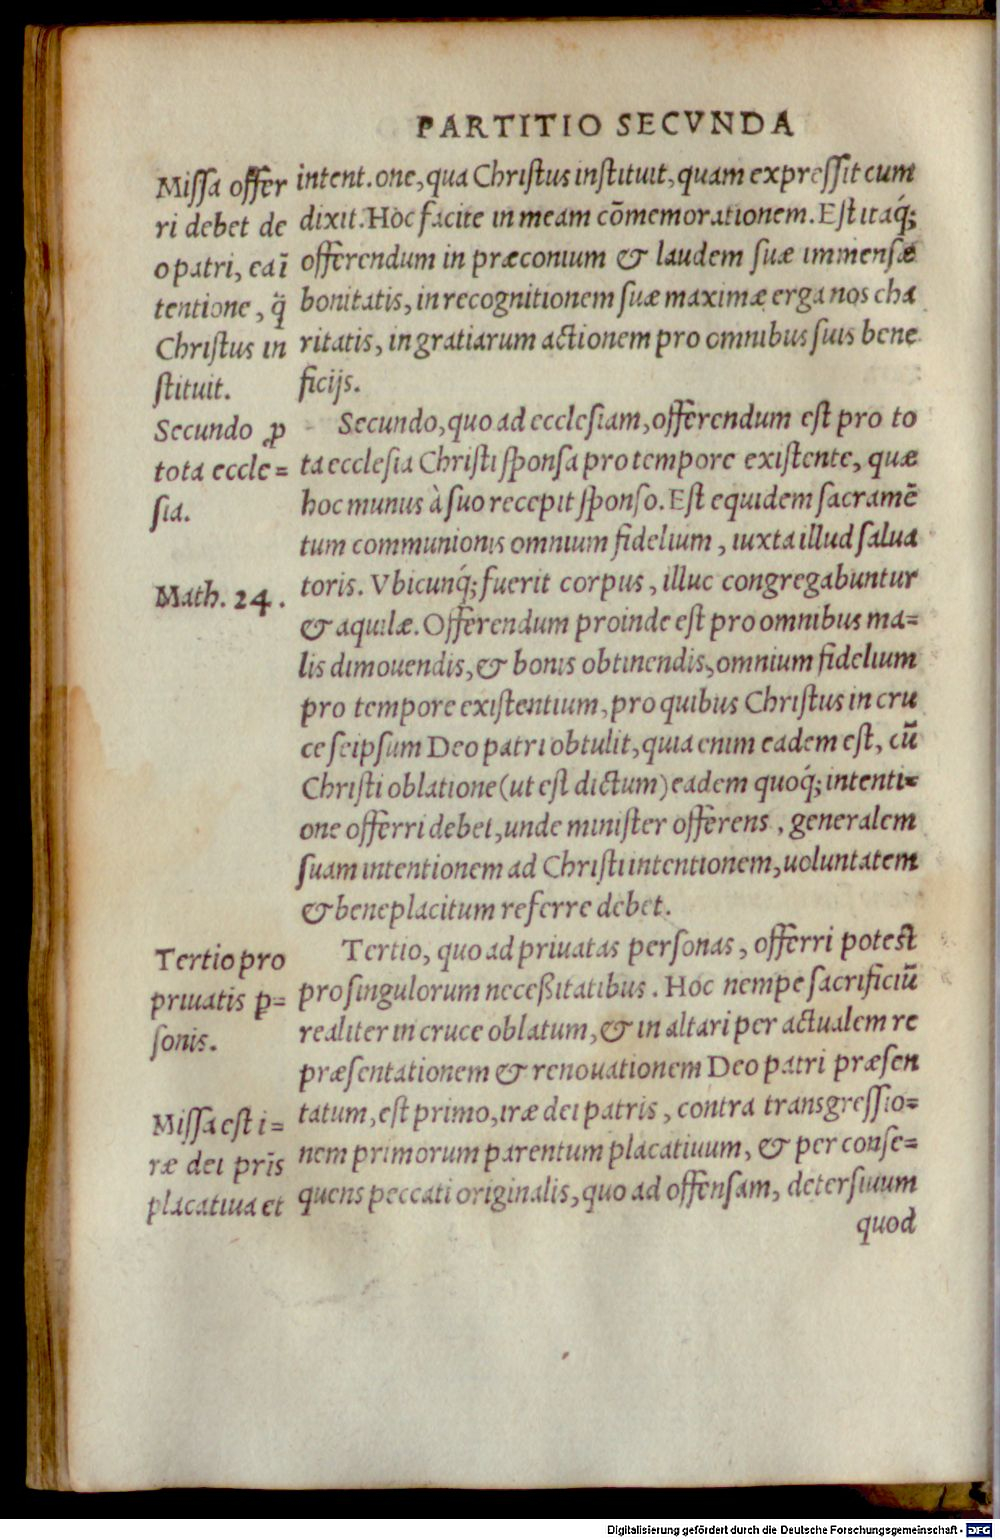 PARTITIO SECVNDA
Missa offer
ri debet de
o patri, ea ī
tentione, q̈
Christus in
stituit.
Secundo ꝓ
tota eccle=
sia.
Math. 24.
Tertio pro
priuatis ꝑ=
sonis.
Missa est i=
ræ dei pr̄is
placatiua et
intent.one, qua Christus instituit, quam expressit cum
dixit. Hoc facite in meam cōmemorationem. Est itaq́;
offerendum in præconium & laudem suæ immensæ
bonitatis, in recognitionem suæ maximæ erga nos cha
ritatis, in gratiarum actionem pro omnibus suis bene
ficijs.
Secundo, quo ad ecclesiam, offerendum est pro to
ta ecclesia Christi sponsa pro tempore existente, quæ
hoc munus à suo recepit sponso. Est equidem sacramē
tum communionis omnium fidelium, iuxta illud salua
toris. Vbicunq́; fuerit corpus, illuc congregabuntur
& aquilæ. Offerendum proinde est pro omnibus ma=
lis dimouendis, & bonis obtinendis, omnium fidelium
pro tempore existentium, pro quibus Christus in cru
ce seipsum Deo patri obtulit, quia enim eadem est, cū
Christi oblatione (ut est dictum) eadem quoq́; intenti=
one offerri debet, unde minister offerens, generalem
suam intentionem ad Christi intentionem, uoluntatem
& beneplacitum referre debet.
Tertio, quo ad priuatas personas, offerri potest
pro singulorum neceßitatibus. Hoc nempe sacrificiū
realiter in cruce oblatum, & in altari per actualem re
præsentationem & renouationem Deo patri præsen
tatum, est primo, iræ dei patris, contra transgressio=
nem primorum parentum placatiuum, & per conse=
quens peccati originalis, quo ad offensam, detersiuum
quod
Digitalisierung gefördert durch die Deutsche Forschungsgemeinschaft - DFG